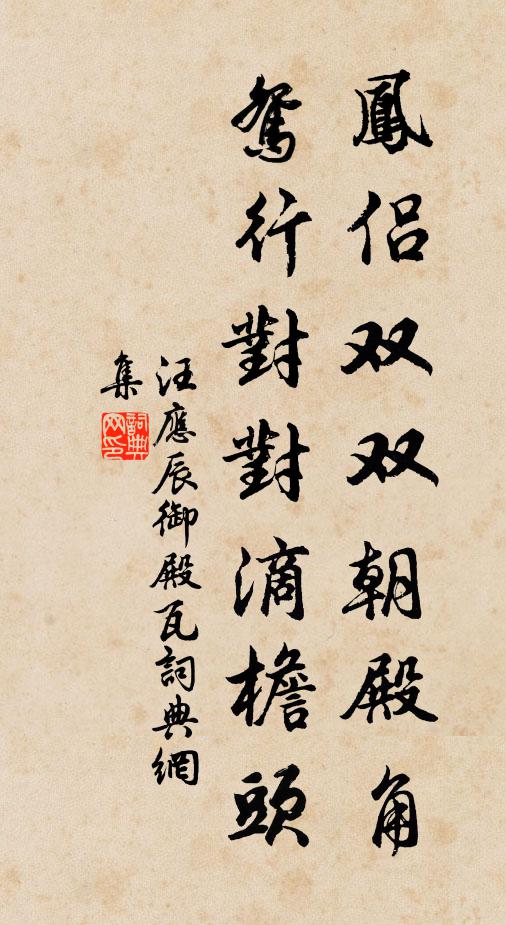 鳳侣双双朝殿角
鴛行對對滴檐頭
汪應辰御殿瓦詞典網
集
詞典
网印